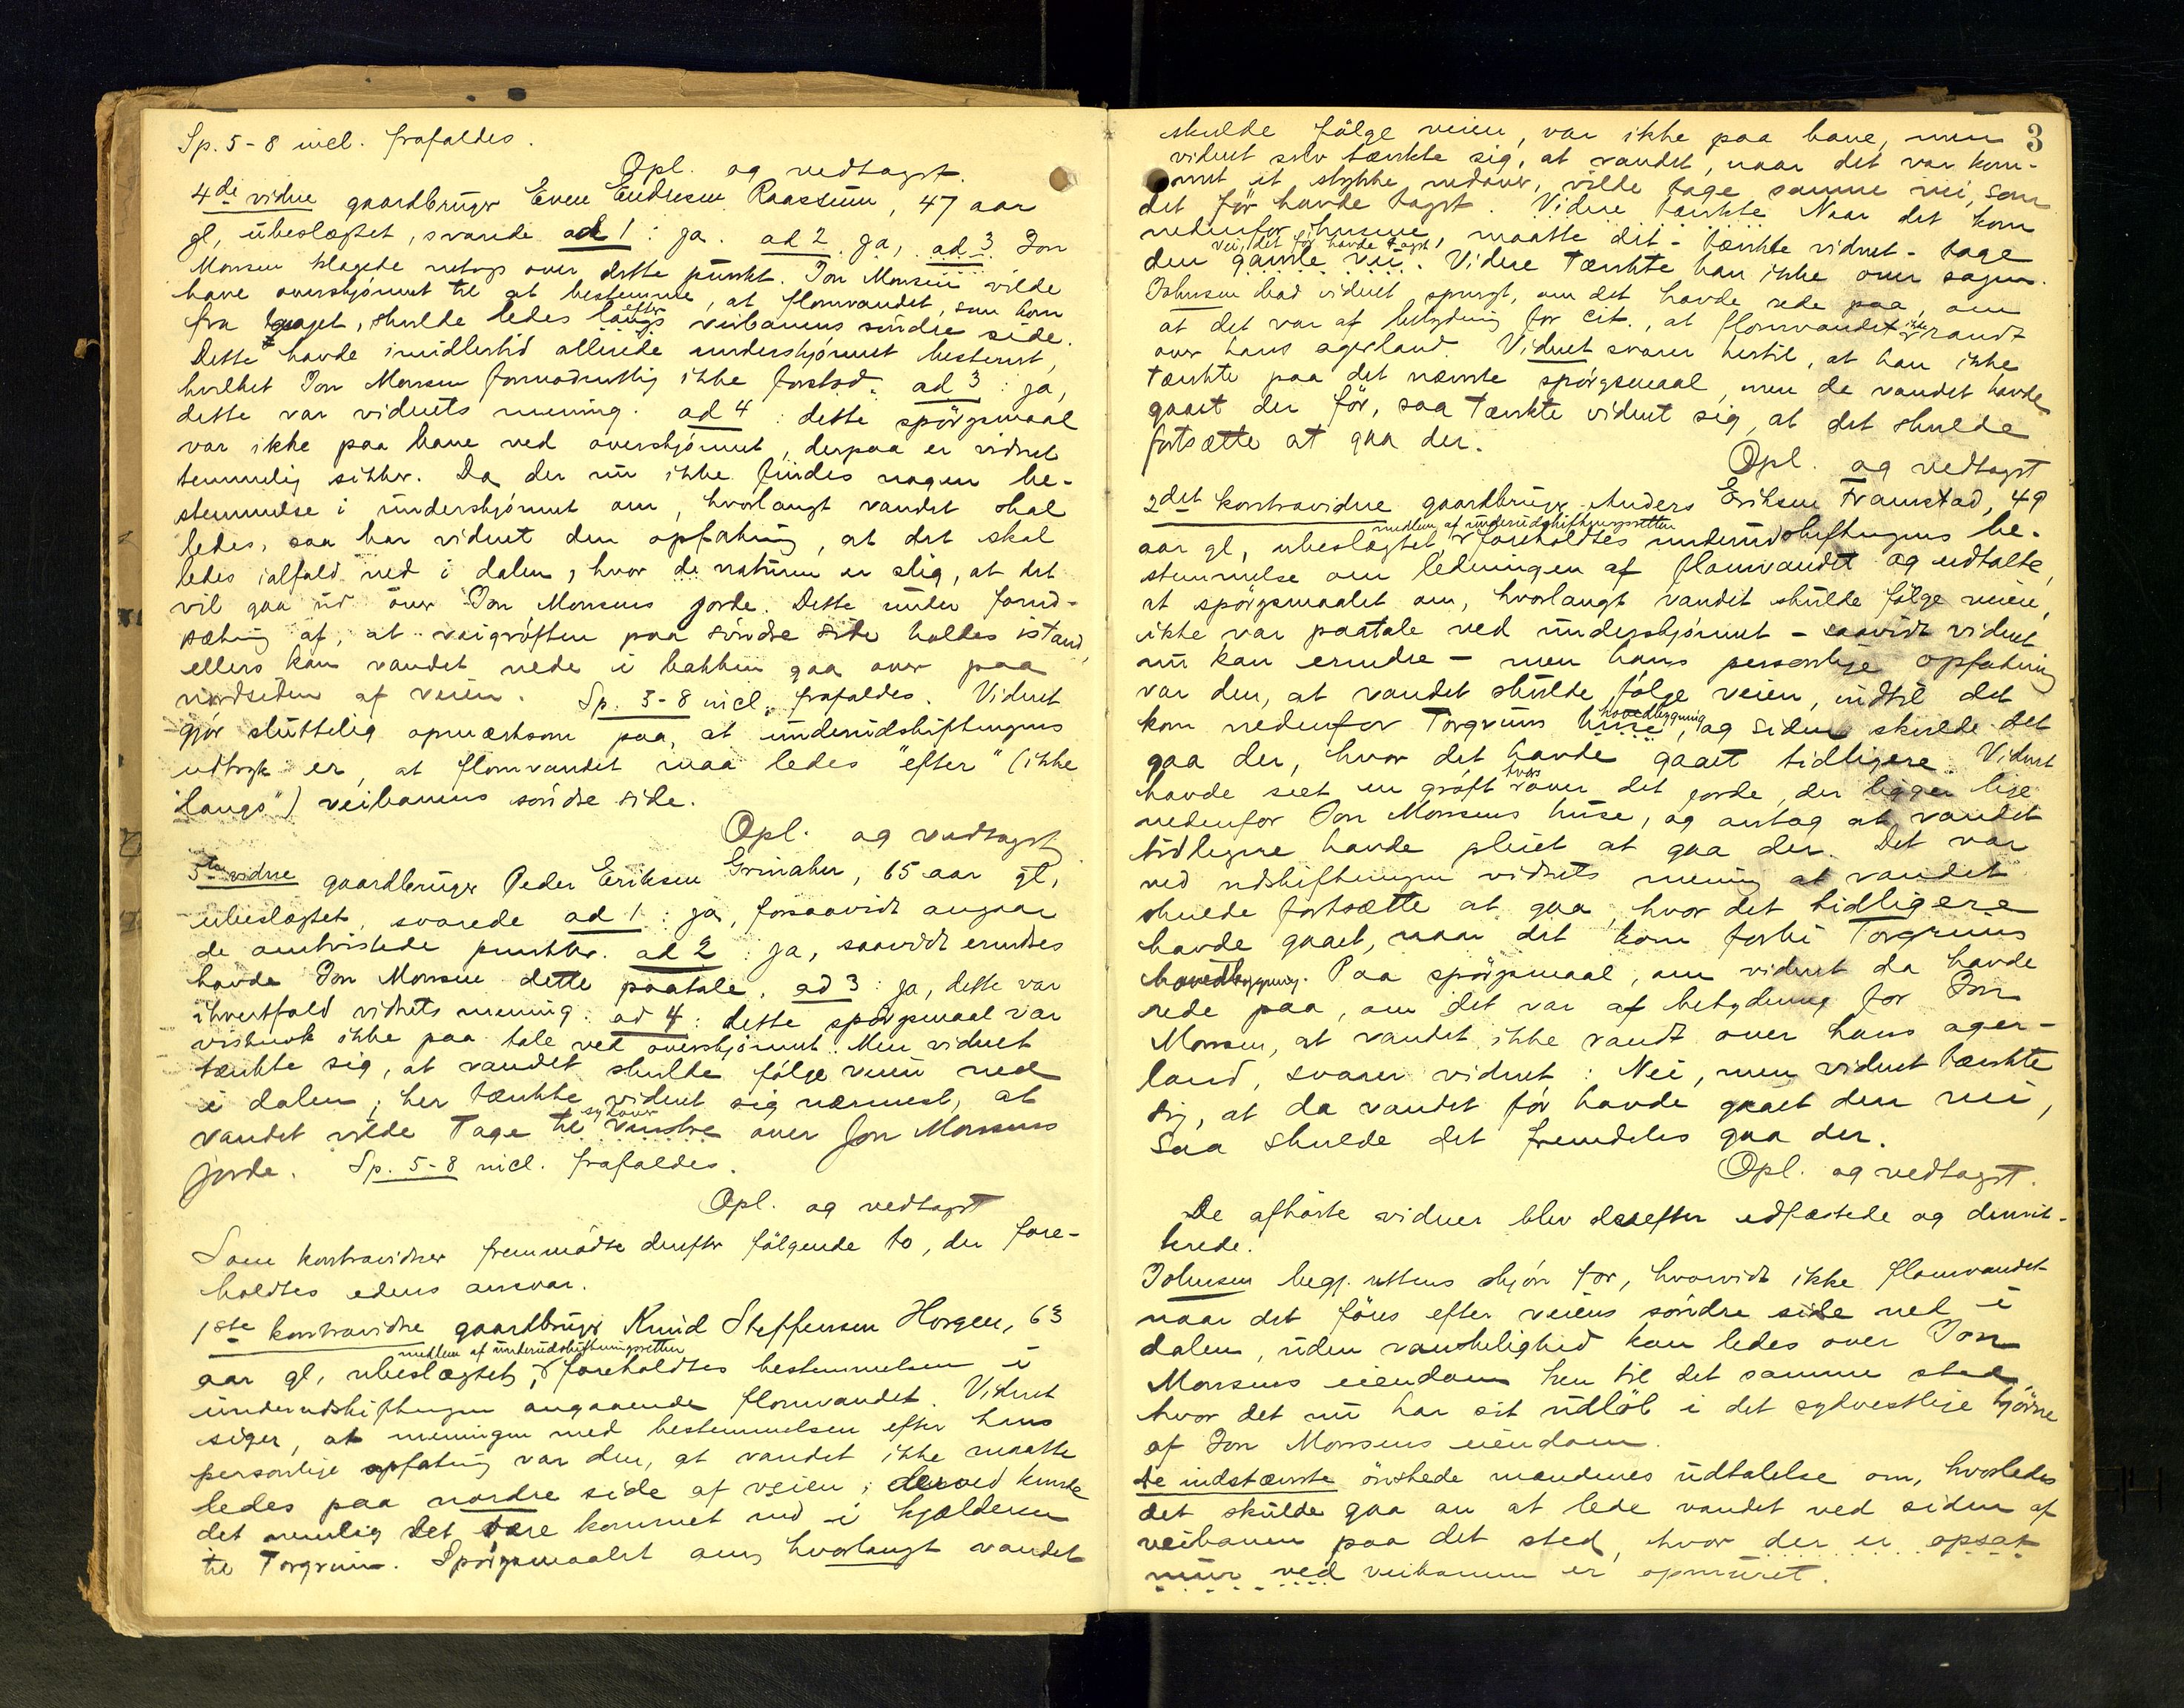 Sp. 5-8 incl. frafaldes.
Opl. og vedtaget.
4de vidne gaardbruger Even Endresen Raassum, 47 aar
gl, ubeslægtet, svarede ad 1: ja. ad 2 ja, ad 3 Jon
Monsen klagede netop over dette punkt. Jon Monsen vilde
have overskjønnet til at bestemme, at flomvandet, som kom
fra taget, skulde ledes langs efter veibanens søndre side.
Dette havde imidlertid allerede underskjønnet bestemt,
hvilket Jon Monsen formodentlig ikke forstod. ad 3: ja,
dette var vidnets mening. ad 4: dette spørgsmaal
var ikke paa bane ved overskjønnet, derpaa er vidnet
temmelig sikker. Da der nu ikke findes nogen be-
stemmelse i underskjønnet om, hvorlangt vandet skal
ledes, saa har vidnet den opfatning, at det skal
ledes ialfald ned i dalen, hvor de naturen er slig, at det
vil gaa ud over Jon Monsens jorde. Dette under forud-
sætning af, at veigrøften paa søndre side holdes istand,
ellers kan vandet nede i bakken gaa over paa
nordsiden af veien. Sp. 5-8 incl. frafaldes. Vidnet
gjør sluttelig opmærksom paa, at underudskiftningens
udtryk er, at flomvandet maa ledes "efter" (ikke
"langs") veibanens søndre side.
Opl. og vedtaget
5te vidne gaardbruger Peder Eriksen Grinaker, 65 aar gl,
ubeslægtet, svarede ad 1: ja, forsaavidt angaar
de omtvistede punkter. ad 2: ja, saavidt erindres
havde Jon Monsen dette paatale. ad 3: ja, dette var
ihvertfald vidnets mening. ad 4: dette spørgsmaal var
vistnok ikke paa tale ved overskjønnet. Men vidnet
tænkte sig, at vandet skulde følge veien ned
i dalen; her tænkte vidnet sig nærmest, at
vandet vilde tage til venstre sydover over Jon Monsens
jorde. Sp. 5-8 incl. frafaldes.
Opl. og vedtaget
Som kontravidner fremmødte derefter følgende to, der fore-
holdtes edens ansvar.
1ste kontravidne gaardbruger Knud Steffensen Horgen, 63
aar gl, ubeslægtet, medlem af underudskiftningsretten foreholdtes bestemmelsen i
underudskiftningen angaaende flomvandet. Vidnet
siger, at meningen med bestemmelsen efter hans
personlige opfatning var den, at vandet ikke maatte
ledes paa nordre side af veien; derved kunde
det nemlig let være kommet ned i kjælderen
til Torgrim. Spørgsmaalet om, hvorlangt vandet
3
skulde følge veien, var ikke paa bane, men
vidnet selv tænkte sig, at vandet, naar det var kom-
met et stykke nedover, vilde tage samme vei, som
det før havde taget. Videre tænkte Naar det kom
nedenfor husene, maatte det - tænkte vidnet - tage
den gamle vei vei, det før havde taget. Videre tænkte han ikke over sagen.
Johnsen bad vidnet spurgt, om det havde rede paa, om
at det var af betydning for cit., at flomvandet ikke randt
over hans agerland. Vidnet svarer hertil, at han ikke
tænkte paa det nævnte spørgsmaal, men da vandet havde
gaaet der før, saa tænkte vidnet sig, at det skulde
fortsætte at gaa der.
Opl. og vedtaget
2det kontravidne gaardbruger Anders Eriksen Framstad, 49
aar gl, ubeslægtet, medlem af underudskiftningsretten foreholdtes underudskiftningens be-
stemmelse om ledningen af flomvandet og udtalte,
at spørgsmaalet om, hvorlangt vandet skulde følge veien,
ikke var paatale ved underskjønnet - saavidt vidnet
nu kan erindre - men hans personlige opfatning
var den, at vandet skulde følge veien, indtil det
kom nedenfor Torgrims huse hovedbygning, og siden skulde det
gaa der, hvor det havde gaaet tidligere. Vidnet
havde seet en grøft tvers over det jorde, der ligger lige
nedenfor Jon Monsens huse, og antog at vandet
tidligere havde pleiet at gaa der. Det var
ved udskiftningen vidnets mening at vandet
skulde fortsætte at gaa, hvor det tidligere
havde gaaet, naar det kom forbi Torgrims
hovedbygning. Paa spørgsmaal, om vidnet da havde
rede paa, om det var af betydning for Jon
Monsen, at vandet ikke randt over hans ager-
land, svarer vidnet: Nei, men vidnet tænkte
sig, at da vandet før havde gaaet den vei,
saa skulde det fremdeles gaa der.
Opl. og vedtaget.
De afhørte vidner blev derefter edfæstede og dimit-
terede.
Johnsen begj. rettens skjøn for, hvorvidt ikke flomvandet
naar det føres efter veiens søndre side ned i
dalen, uden vanskelighed kan ledes over Jon
Monsens eiendom hen til det samme sted,
hvor det nu har sit udløb i det sydvestlige hjørne
af Jon Monsens eiendom.
De indstævnte ønskede mændenes udtalelse om, hvorledes
det skulde gaa an at lede vandet ved siden af
veibanen paa det sted, hvor der er opsat
mur ved veibanen er opmuret.